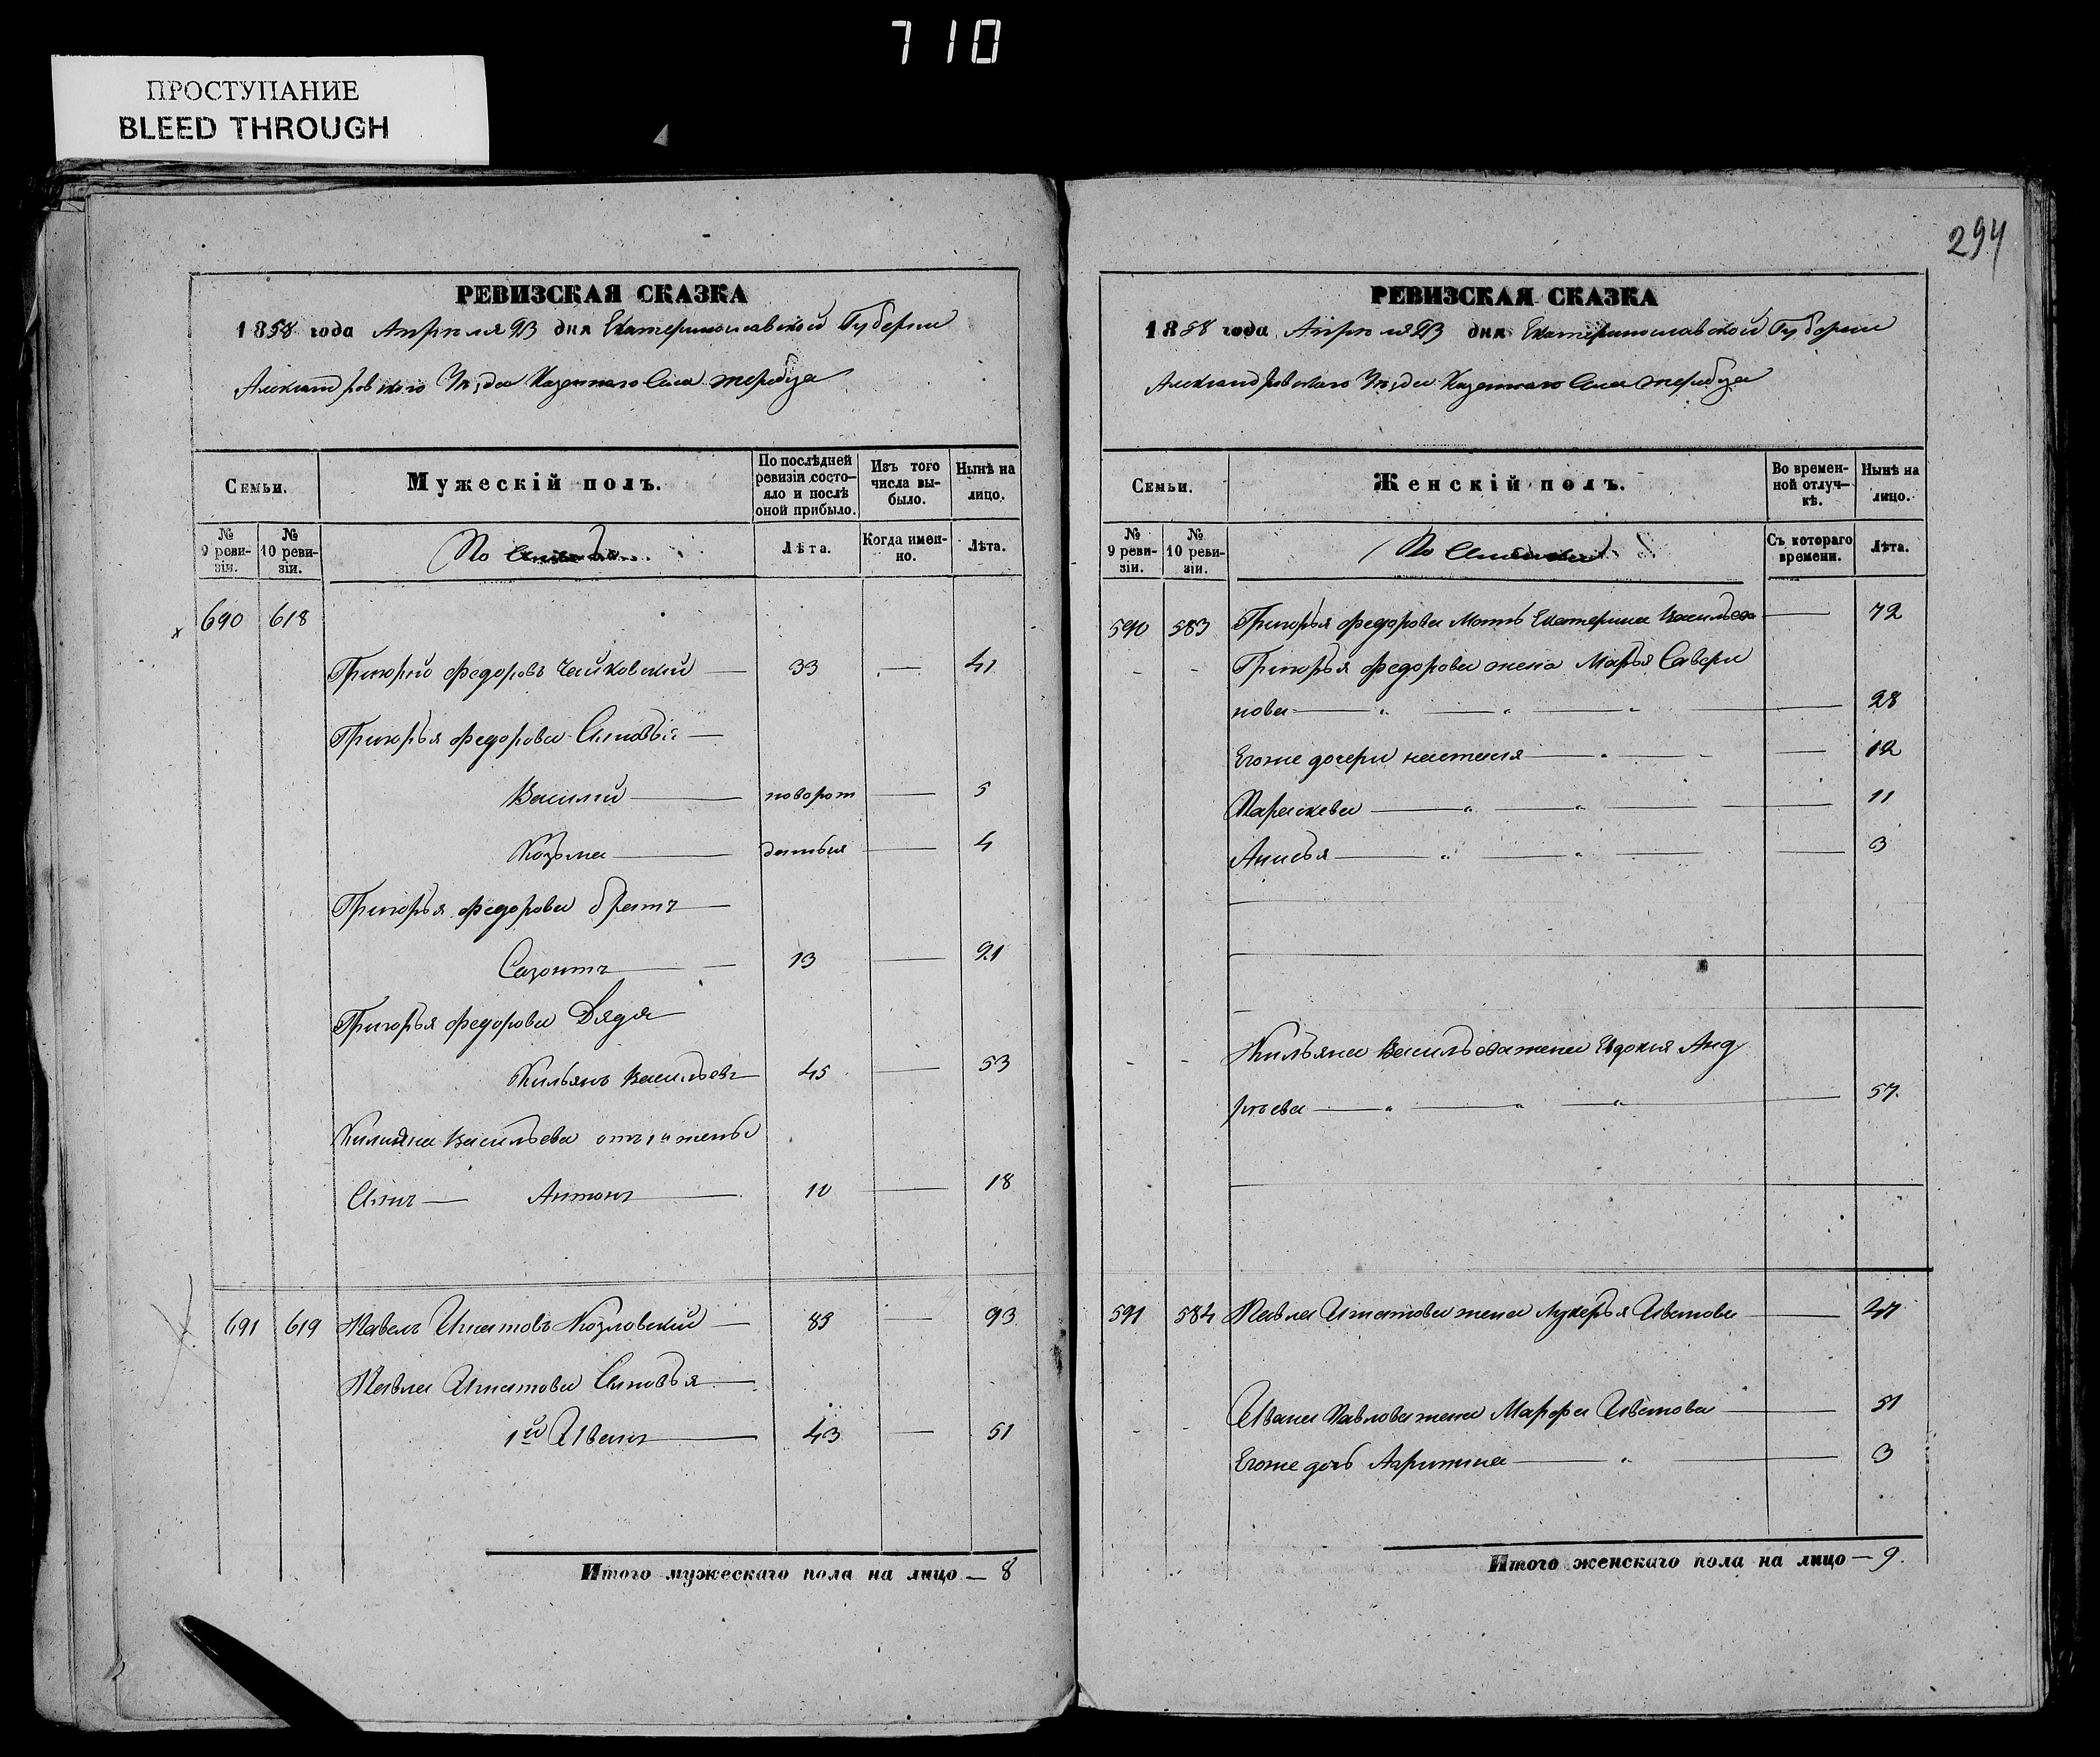 710
ПРОСТУПАНИЕ
BLEED THROUGH
РЕВИЗСКАЯ СКАЗКА
1858 года Апрѣля 23 дня Екатеринославской Губерни
Александровского Уѣзда Казеннаго Села
Семьи.
Мужескій полъ.
По послѣдней ревизіи состо-
яло и послѣ
оной прибыло.
Изъ того
числа вы-
было.
Нынѣ на
лицо.
№
9 реви-
зіи.
№
10 реви-
зіи.
По
Лѣта.
Когда имен-
но.
Лѣта.
690 618
Григорій Федоровъ Чайковский — 33 — 41
Григорья Федорова Синовья —
Василий — новорож — 5
Козьма — — 4
Григорья Федорова братъ —
Сазонтъ — 13 — 21
Григорья Федорова Дядя —
Кильянъ Васильевъ 45 — 53
Килияна Васильева отъ 1й жены
Сынъ — Антонъ — 10 — 18
691 619 Павелъ Игнатовъ Козловский — 85 — 93
Павла Игнатова Синовья —
1й Иванъ — 43 — 51
Итого мужескаго пола на лицо — 8
294
РЕВИЗСКАЯ СКАЗКА
1858 года Апрѣля 23 дня Екатеринославской Губернии
Александровскаго Уѣзда Казеннаго Села
Семьи.
Женскій полъ.
Во времен-
ной отлуч-
кѣ.
Нынѣ на
лицо.
№
9 реви-
зіи.
№
10 реви-
зіи.
По
Съ котораго
времени.
Лѣта.
590 583 Григорья Федорова Мать Екатерина Васильева — 72
- - Григорья Федорова жена Марья Савери
нова — " — " — " — 28
Егоже дочери настасия — " — — 12
Параскева — " — " — 11
Анисья — " — " — 3
- - Кильяна Васильева жена Евдокия Анд
рѣева — " — " — " — 57
591 584 Павла Игнатова жена Лукерья Иванова —
- - Ивана Павлова жена Марфа Иванова — 51
Егоже дочь Агрипина — " — 3
Итого женскаго пола на лицо — 9.